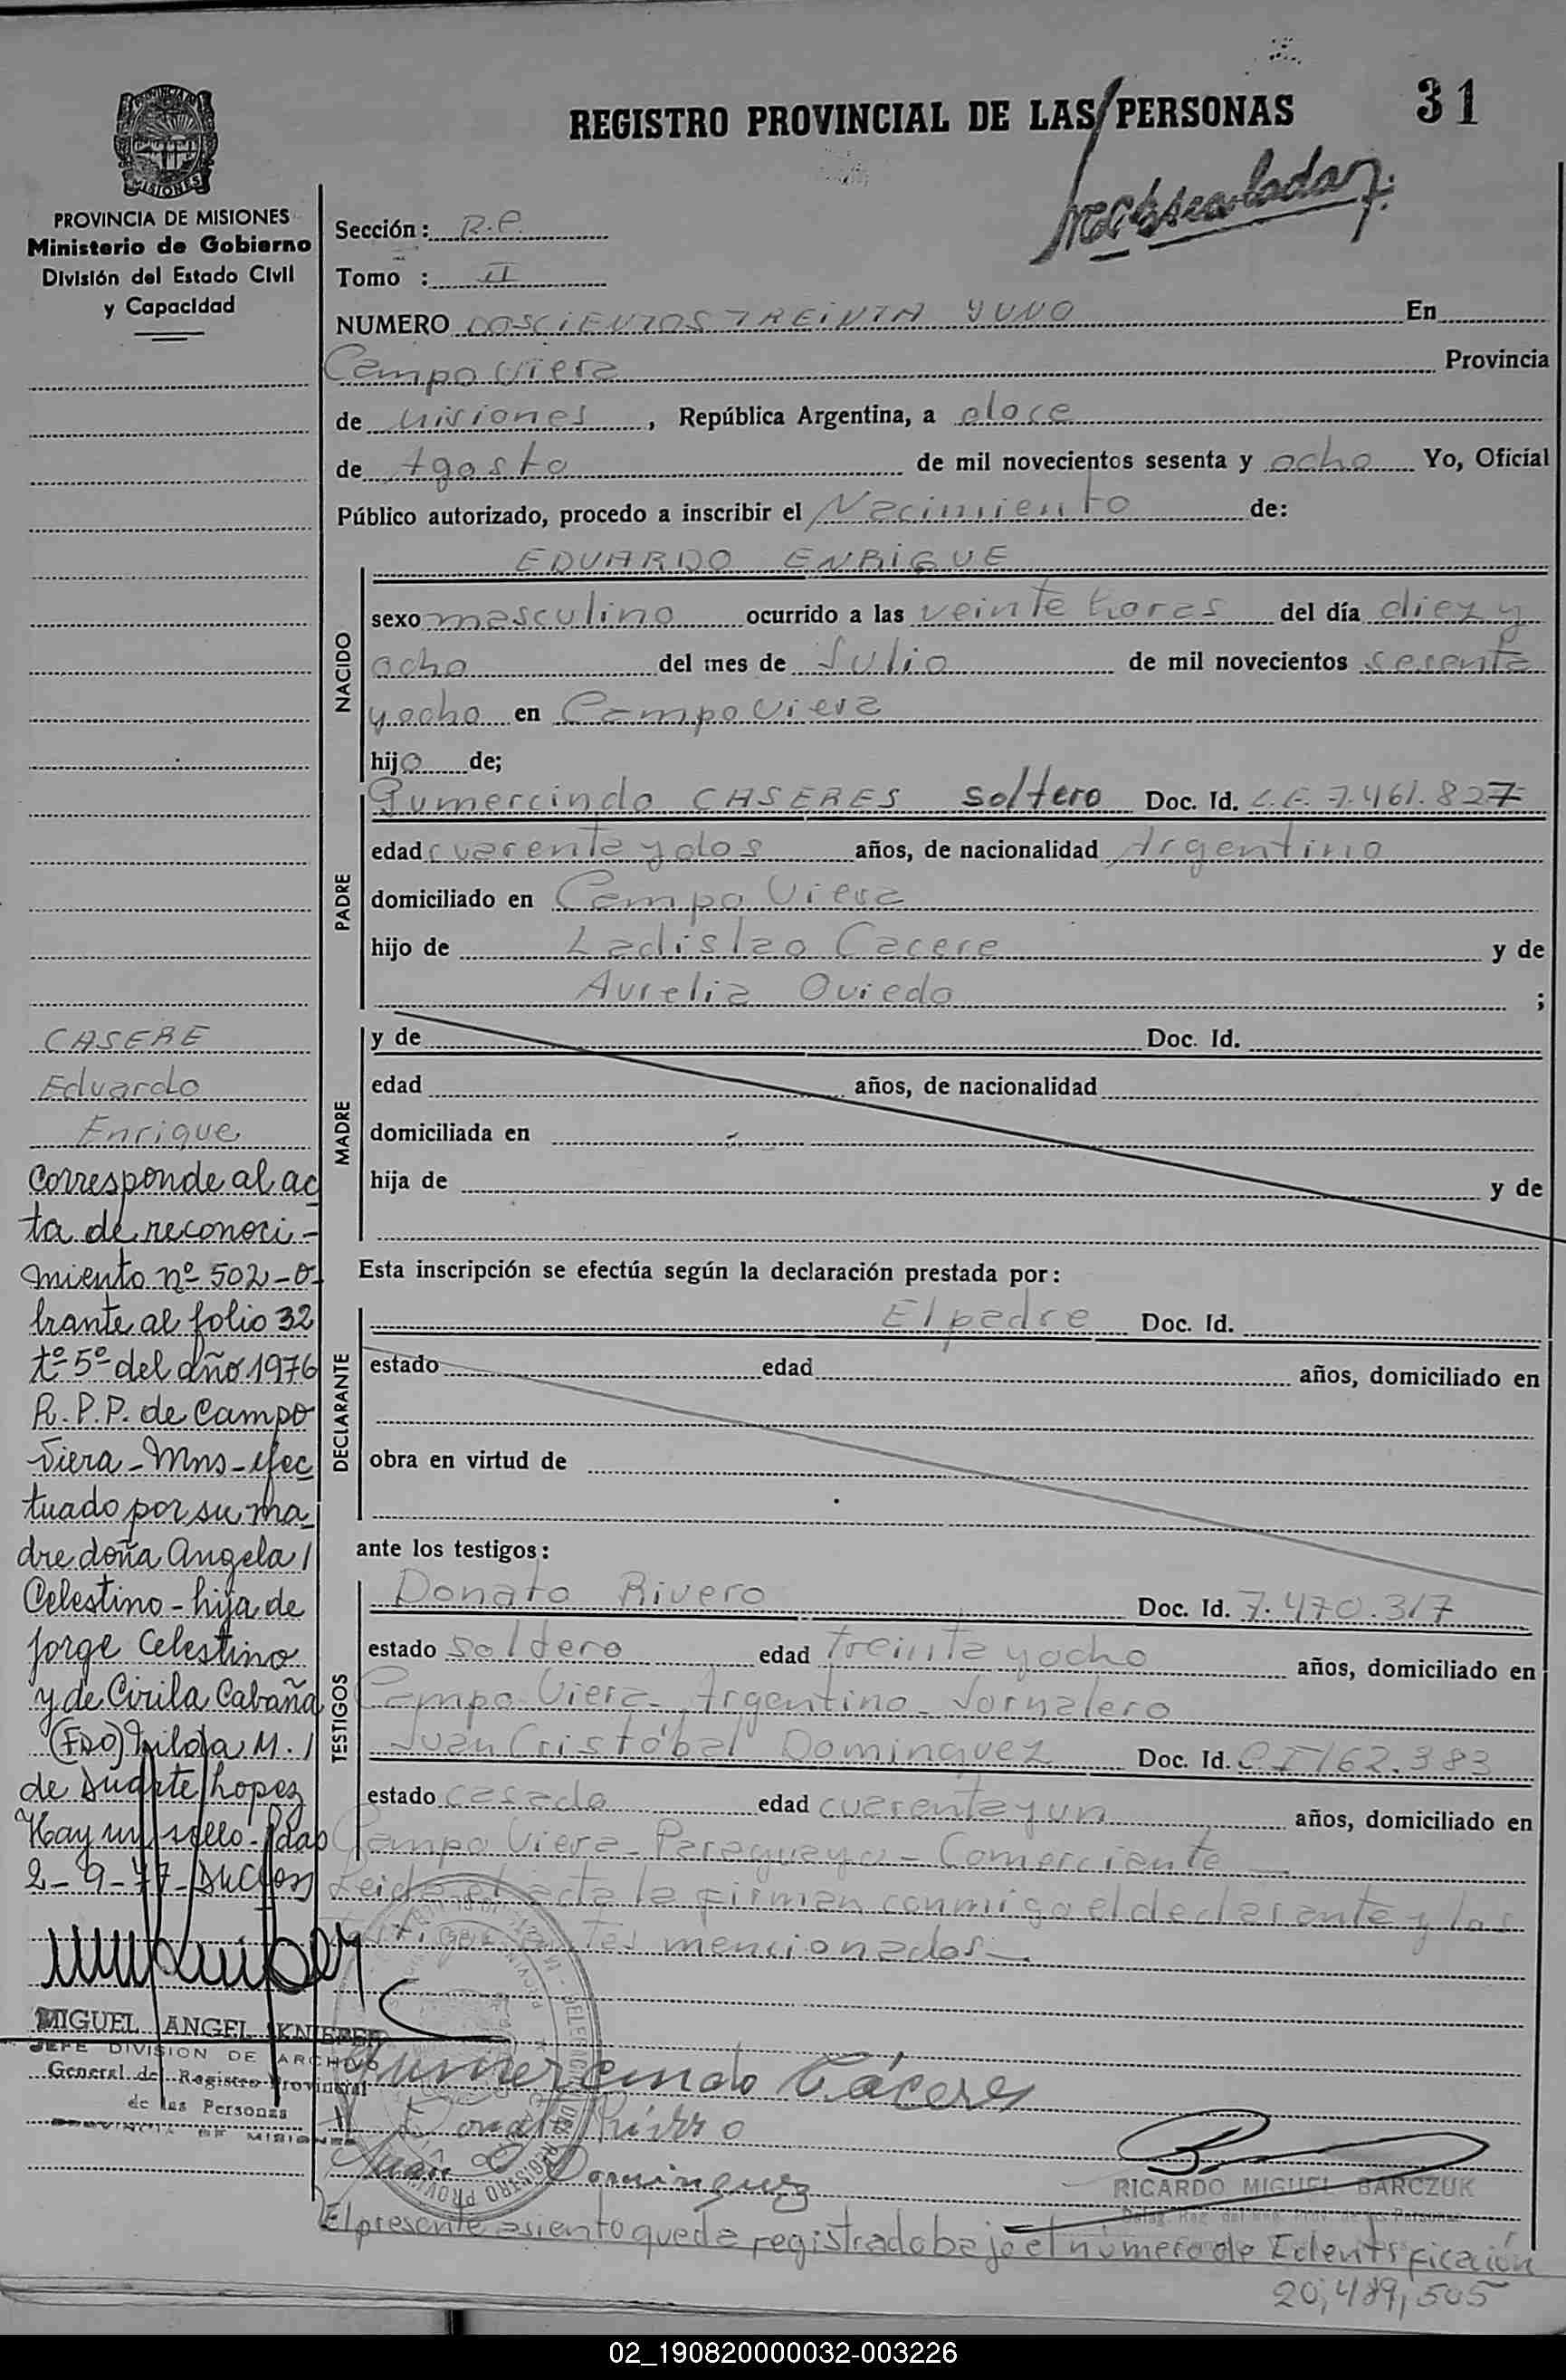 REGISTRO PROVINCIAL DE LAS PERSONAS
31
MISIONES
PROVINCIA DE MISIONES
Ministerio de Gobierno
División del Estado Civil
y Capacidad
Sección: R.P.
Tomo : II
NUMERO DOSCIENTOS TREINTA Y UNO En
Campo Viera Provincia
de Misiones, República Argentina, a doce
de Agosto de mil novecientos sesenta y ocho Yo, Oficial
Público autorizado, procedo a inscribir el Nacimiento de:
EDUARDO ENRIQUE
NACIDO
sexo masculino ocurrido a las veinte horas del día diez y
ocho del mes de Julio de mil novecientos sesenta
y ocho en Campo Viera
hijo de;
PADRE
Gumercindo CASERES soltero Doc. Id. L.E. 7.461.827
edad cuarenta y dos años, de nacionalidad Argentino
domiciliado en Campo Viera
hijo de Ladislao Cacere y de
Aurelia Oviedo ;
MADRE
y de Doc. Id.
edad años, de nacionalidad
domiciliada en
hija de y de
Esta inscripción se efectúa según la declaración prestada por:
DECLARANTE
El padre Doc. Id.
estado edad años, domiciliado en
obra en virtud de
ante los testigos:
TESTIGOS
Donato Rivero Doc. Id. 7.470.317
estado soltero edad treinta y ocho años, domiciliado en
Campo Viera - Argentino - Jornalero
Juan Cristóbal Dominguez Doc. Id. C.I 162.383
estado casado edad cuarenta y un años, domiciliado en
Campo Viera - Paraguayo - Comerciante
Leida el acta la firman conmigo el declarante y los
mencionados
CASERE
Eduardo
Enrique
Corresponde al ac
ta de reconoci-
miento nº 502-o-
brante al folio 32
tº 5º del año 1976
R.P.P. de Campo
Viera - Mns - efec
tuado por su ma
dre doña Angela
Celestino - hija de
Jorge Celestino
y de Cirila Cabaña
(FDO) Hilda M.
de Duarte Lopez
Hay un sello - Pdas
2-9-77
MIGUEL ANGEL KNIEPER
JEFE DIVISION DE ARCHIVO
General del Registro Provincial
de las Personas
PROVINCIA DE MISIONES
Gumercindo Cáceres
Donato Rivero
Juan C Dominguez
RICARDO MIGUEL BARCZUK
El presente asiento queda registrado bajo el número de Identificación
20,489,505
02_190820000032-003226